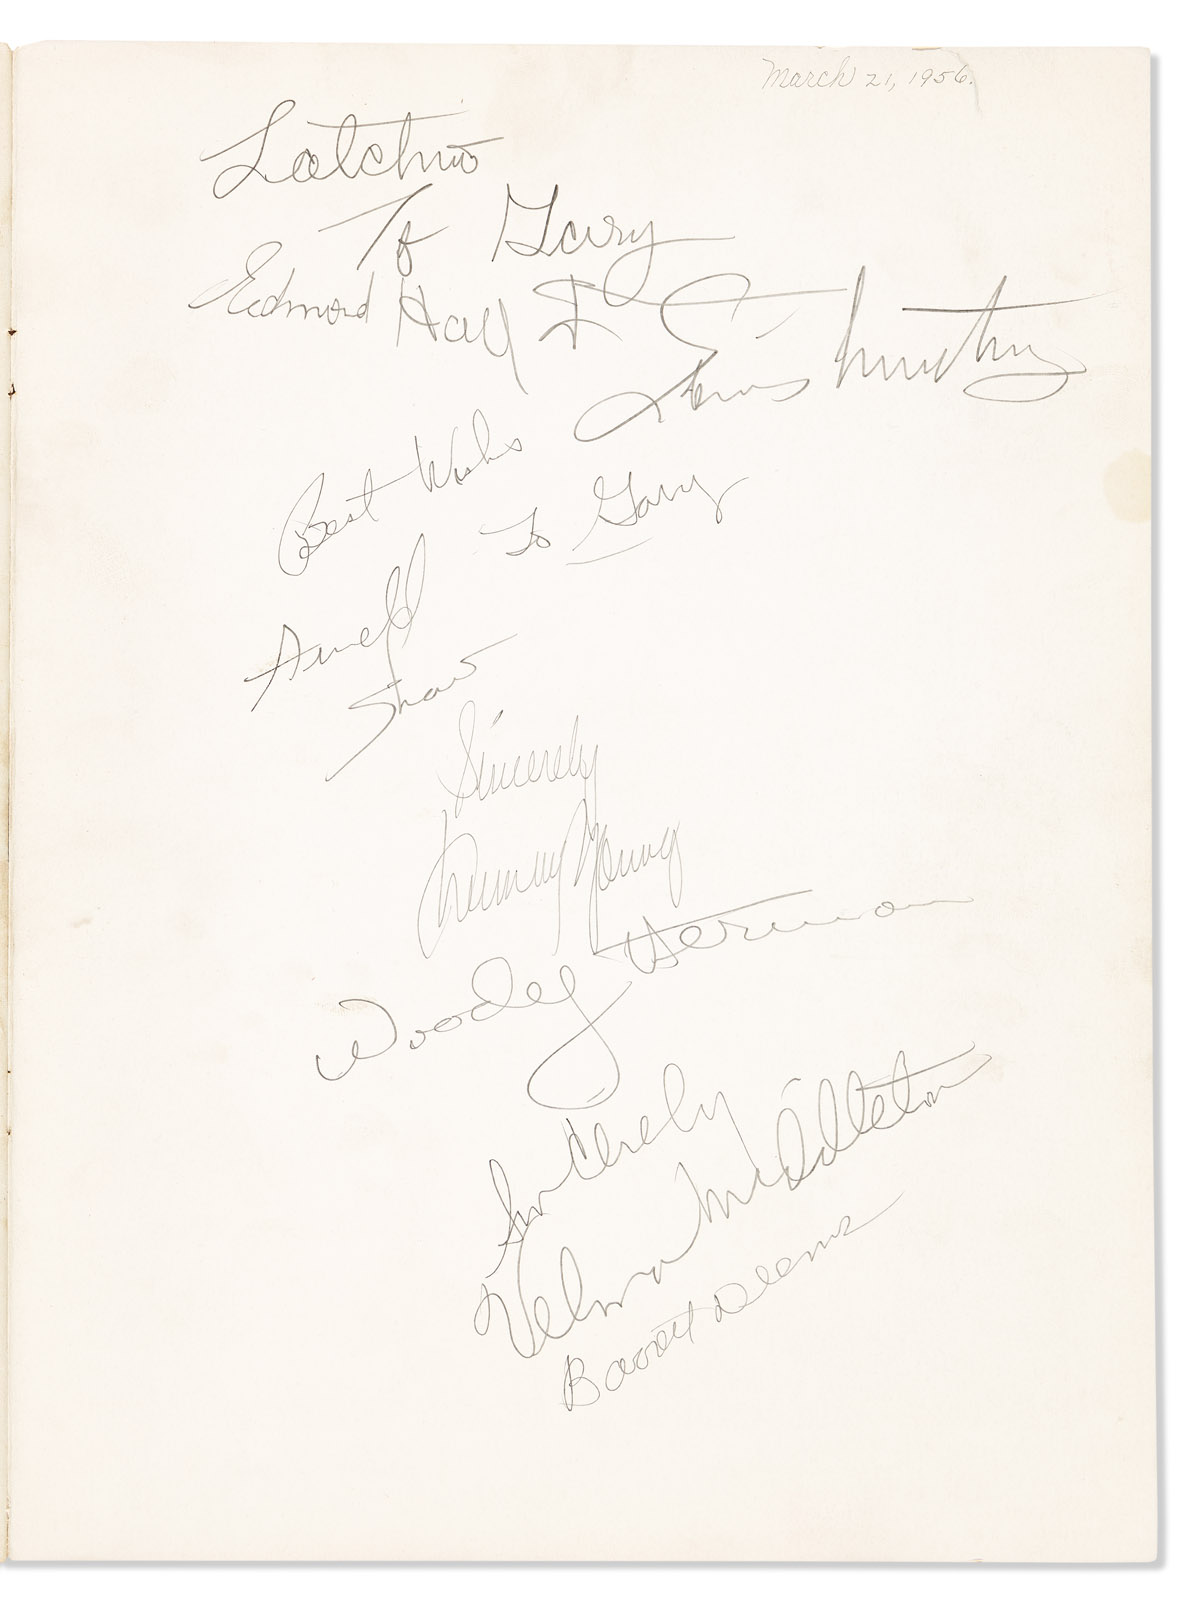 March 21, 1956.
Satchmo
To Gary
Edmond Hall
Louis Armstrong
Best Wishes
To Gary
Arvell
Shaw
Sincerely
Trummy Young
Woody Herman
Sincerely
Velma Middleton
Barrett Deems